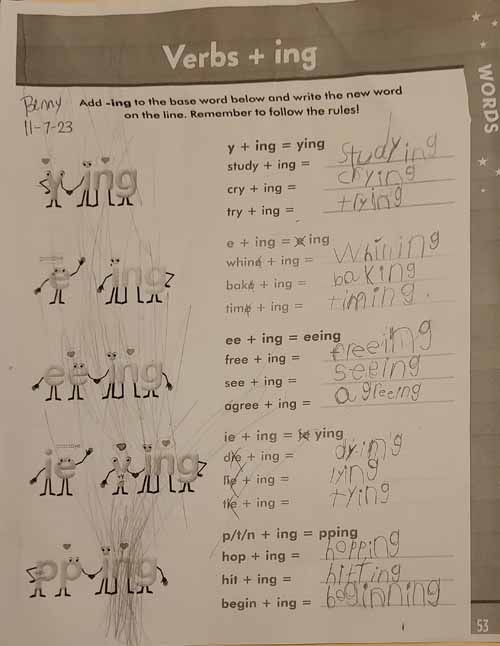 Verbs + ing
WORDS
Benny
11-7-23
Add -ing to the base word below and write the new word
on the line. Remember to follow the rules!
y ing
y + ing = ying
study + ing = studying
cry + ing = crying
try + ing = trying
e ing
e + ing = e ing
whine + ing = Whining
bake + ing = baking
time + ing = timing
ee ing
ee + ing = eeing
free + ing = freeing
see + ing = seeing
agree + ing = agreeing
ie y ing
ie + ing = ie ying
die + ing = dying
lie + ing = lying
tie + ing = tying
pp ing
p/t/n + ing = pping
hop + ing = hopping
hit + ing = hitting
begin + ing = beginning
53